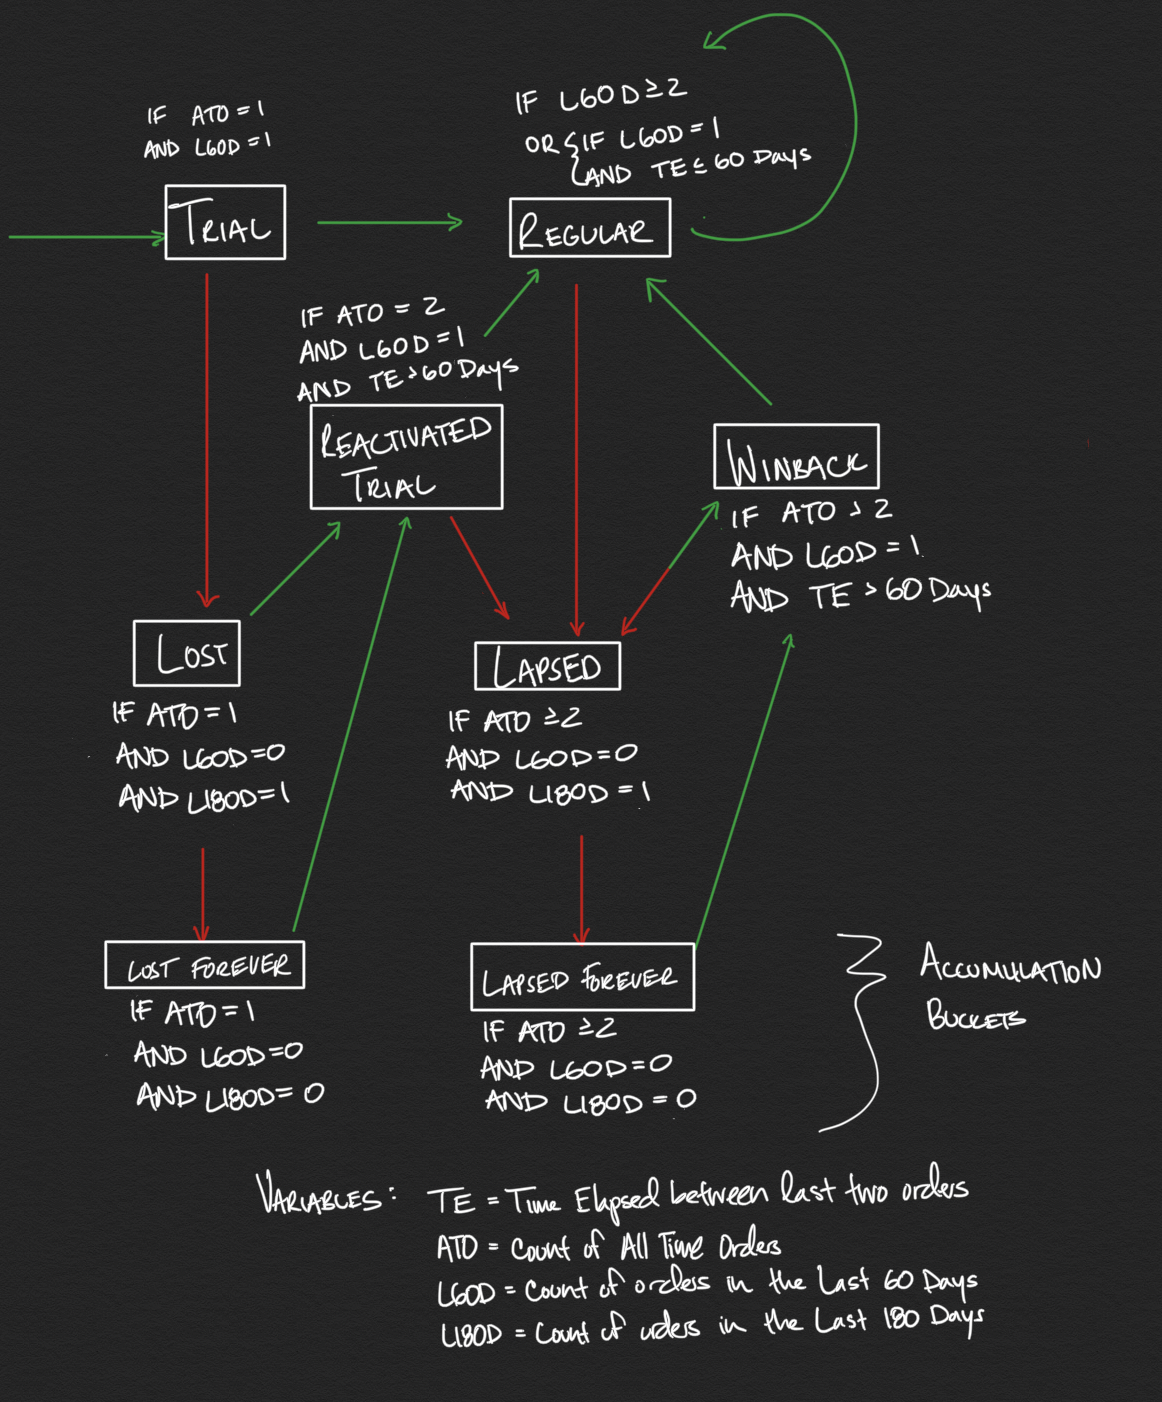 IF ATO = 1
AND L60D = 1
TRIAL
IF L60D ≥ 2
OR { IF L60D = 1
AND TE ≤ 60 Days
REGULAR
IF ATO = 2
AND L60D = 1
AND TE > 60 Days
REACTIVATED
TRIAL
WINBACK
IF ATO > 2
AND L60D = 1
AND TE > 60 Days
LOST
IF ATO = 1
AND L60D = 0
AND L180D = 1
LAPSED
IF ATO ≥ 2
AND L60D = 0
AND L180D = 1
LOST FOREVER
IF ATO = 1
AND L60D = 0
AND L180D = 0
LAPSED FOREVER
IF ATO ≥ 2
AND L60D = 0
AND L180D = 0
ACCUMULATION
BUCKETS
VARIABLES: TE = Time Elapsed between last two orders
ATO = Count of All Time Orders
L60D = Count of orders in the Last 60 Days
L180D = Count of orders in the Last 180 Days